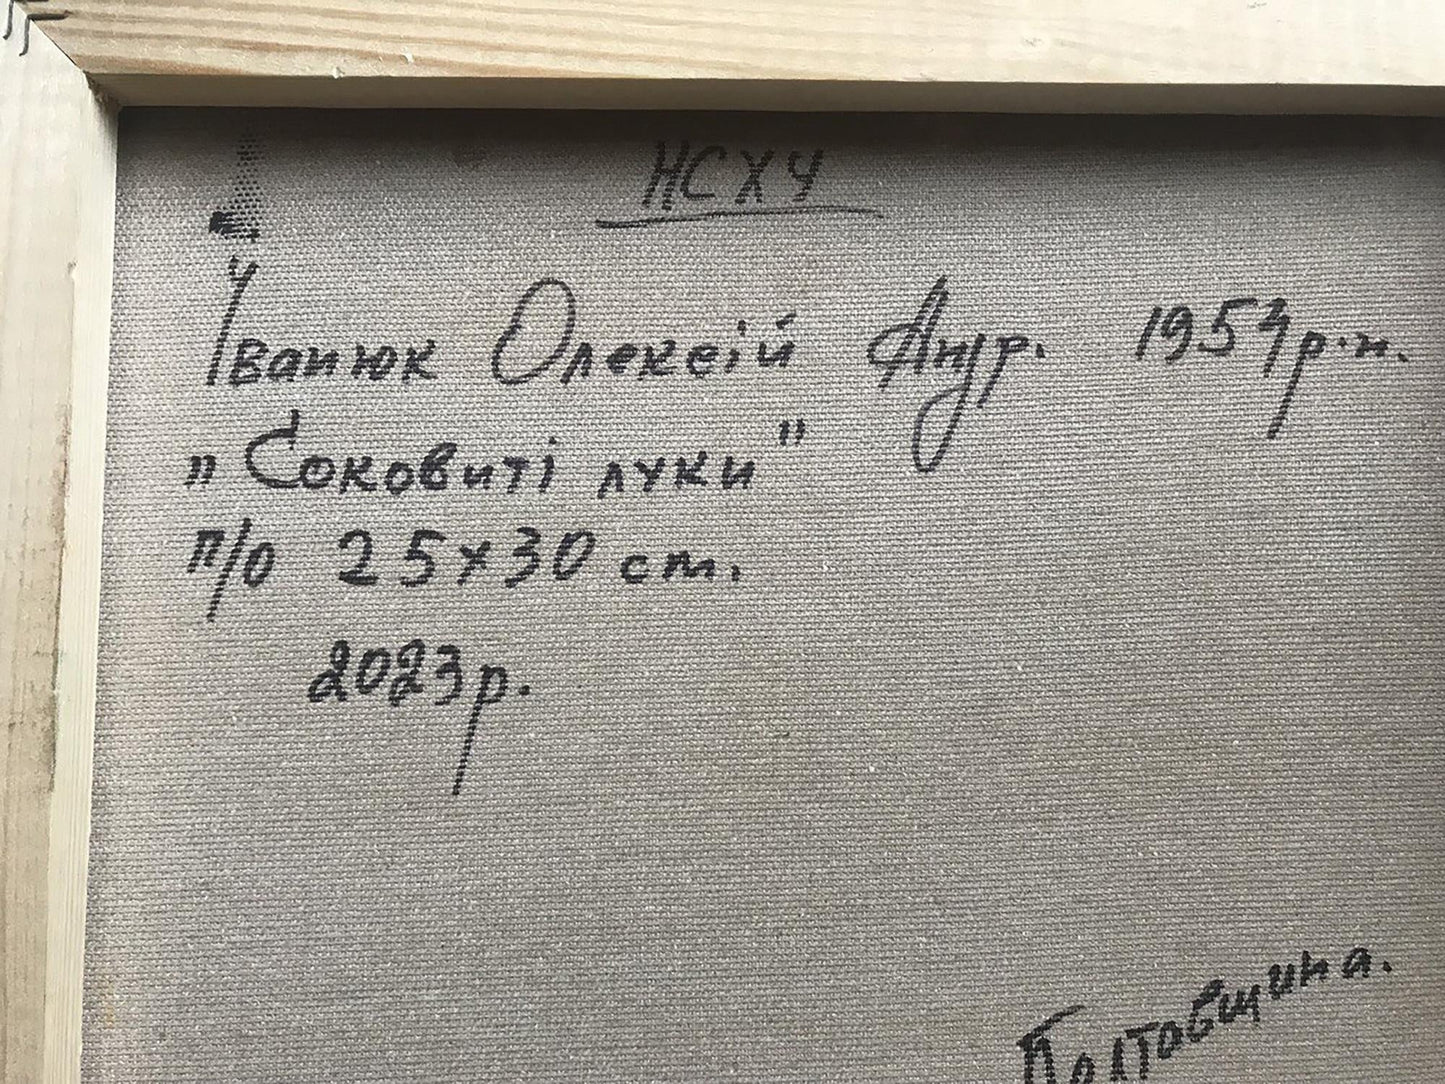 НСХУ
Іванюк Олексій Андр. 1954р.н.
„Соковиті луки"
п/о 25х30 см.
2023р.
Полтавщина.